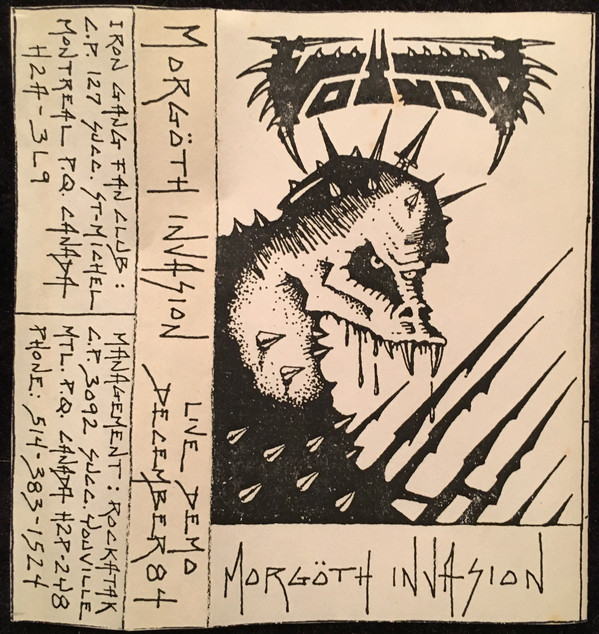 IRON GANG FAN CLUB:
C.P. 127 SUCC. ST-MICHEL
MONTREAL P.Q. CANADA
H2A-3L9
MANAGEMENT: ROCKATAK
C.P. 3092 SUCC. YOUVILLE
MTL. P.Q. CANADA H2P-2Y8
PHONE: 514-383-1524
MORGÖTH INVASION
LIVE DEMO
DECEMBER 84
VOIVOD
MORGÖTH INVASION